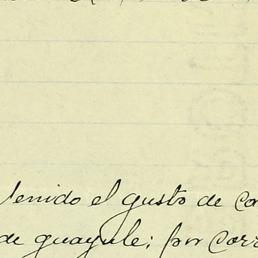 tenido el gusto de
de guayule; por